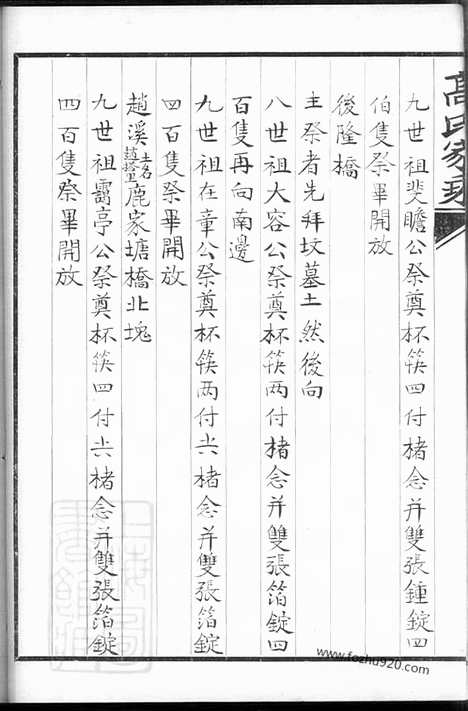 高氏家乘
九世祖斐瞻公祭奠杯筷四付楮念并雙張錘錠四
伯隻祭畢開放
後隆橋
主祭者先拜坟墓土然後向
八世祖大容公祭奠杯筷两付楮念并雙張箔錠四
百隻再向南邊
九世祖在章公祭奠杯筷两付𣥂楮念并雙張箔錠
四百隻祭畢開放
趙溪土名鹿家塘橋北堍
九世祖靄亭公祭奠杯筷四付𣥂楮念并雙張箔錠
四百隻祭畢開放
www.fozhu920.com